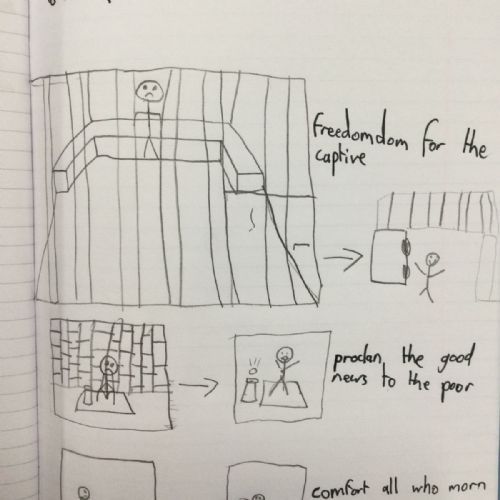 freedomdom for the
captive
proclan, the good
news to the poor
comfort all who morn